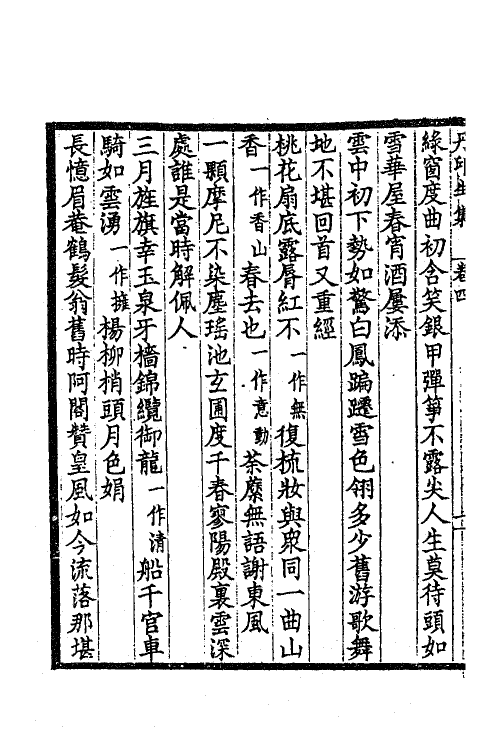 丹邱生集 卷四
綠窗度曲初含笑銀甲彈箏不露尖人生莫待頭如
雪華屋春宵酒屢添
雲中初下勢如驚白鳳蹁躚雪色翎多少舊游歌舞
地不堪回首又重經
桃花扇底露脣紅不一作無復梳妝與衆同一曲山
香一作香山春去也一作意動荼蘪無語謝東風
一顆摩尼不染塵瑤池玄圃度千春寥陽殿裏雲深
處誰是當時解佩人
三月旌旗幸玉泉牙檣錦纜御龍一作清船千官車
騎如雲湧一作擁楊柳梢頭月色娟
長憶眉菴鶴髮翁舊時阿閣贊皇風如今流落那堪